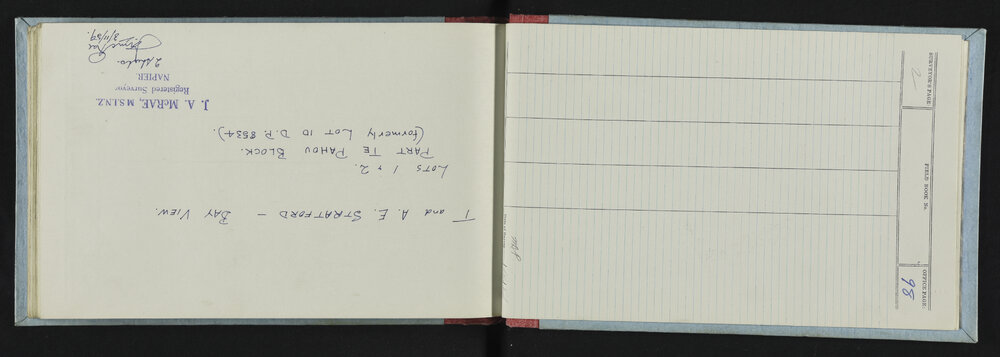 T and A. E. STRATFORD - BAY VIEW.
LOTS 1 & 2.
PART TE PAHOU BLOCK.
(formerly LOT 10 D.P. 8534).
J. A. McRAE, M.S.I.N.Z.
Registered Surveyor
NAPIER
SURVEYOR'S PAGE:
2
FIELD BOOK No.
OFFICE PAGE:
98